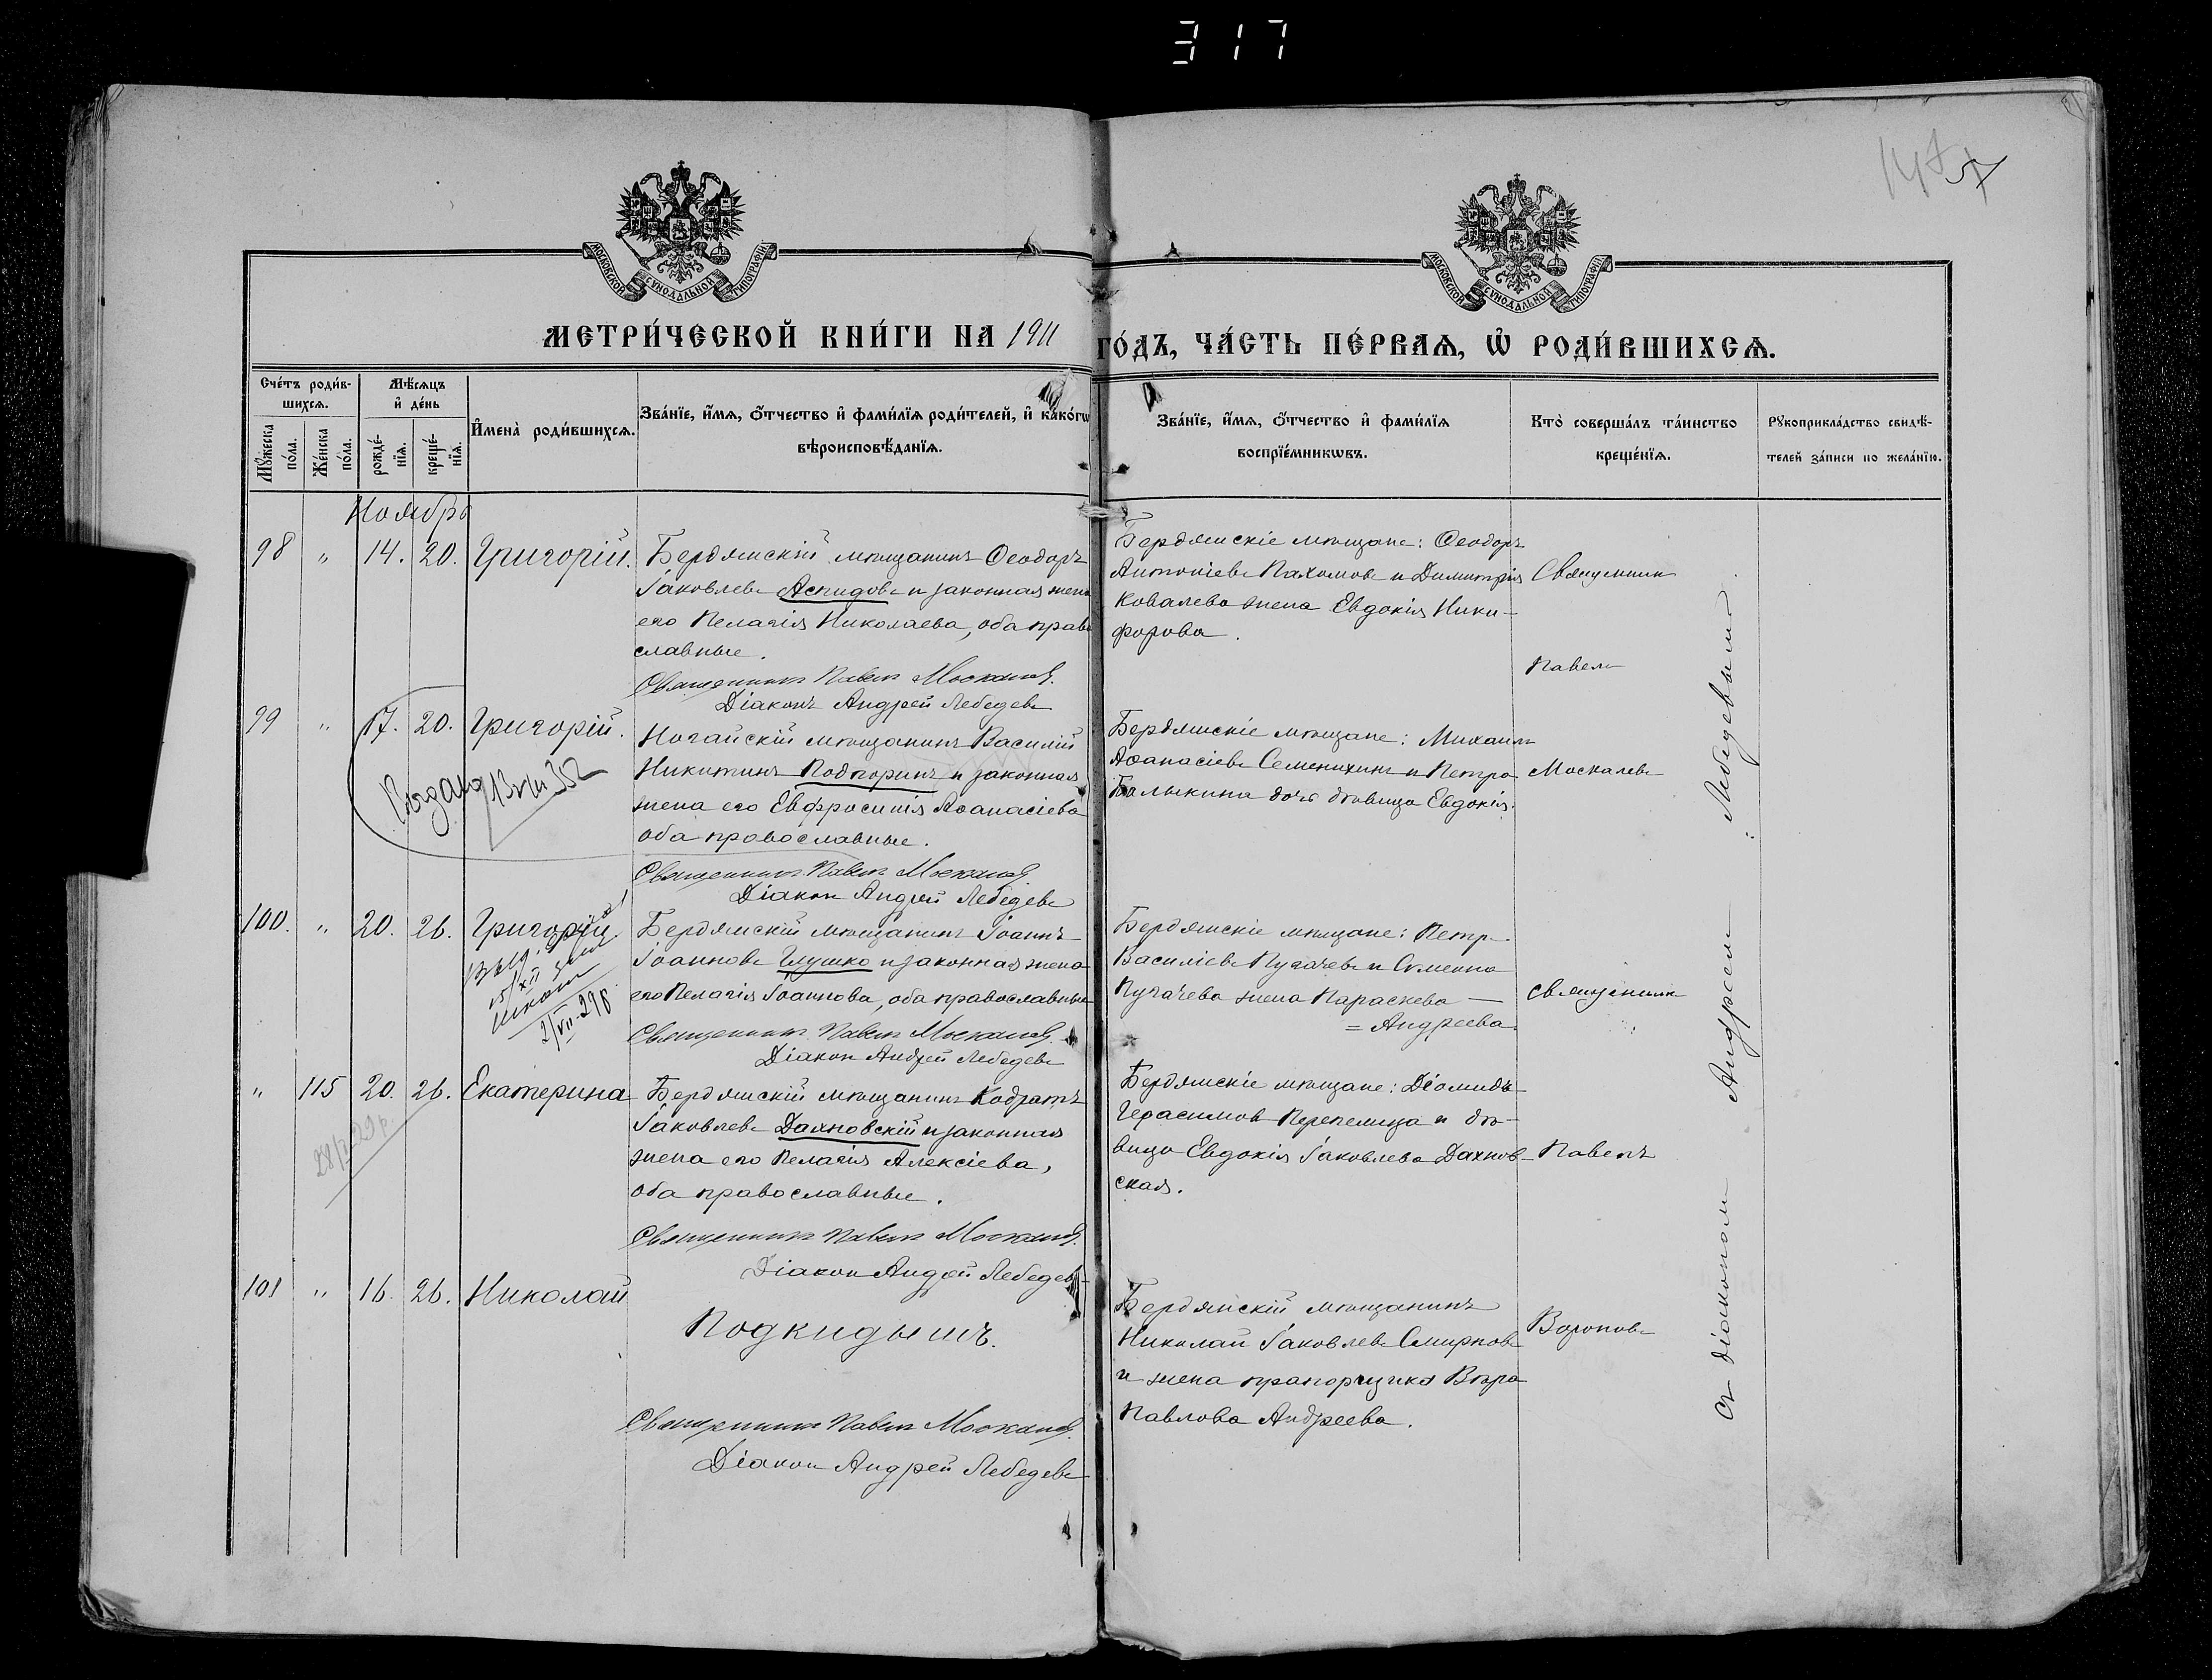 317
1477
МОСКОВСКОЙ СѴНОДАЛЬНОЙ ТИПОГРАФІИ
МОСКОВСКОЙ СѴНОДАЛЬНОЙ ТИПОГРАФІИ
МЕТРИ́ЧЕСКОЙ КНИ́ГИ НА 1911 ГО́ДЪ, ЧА́СТЬ ПЕ́РВАѦ, Ѡ҆ РОДИ́ВШИХСѦ.
Сче́тъ роди́в-
шихсѧ.
Мꙋ́жеска
по́ла.
Же́нска
по́ла.
Мѣ́сѧцъ
и҆ де́нь
рожде́-
нїѧ.
креще́-
нїѧ.
И҆мена̀ роди́вшихсѧ.
Зва́нїе, и҆́мѧ, ѻ҆́тчество и҆ фами́лїѧ роди́телей, и҆ како́гѡ
вѣроисповѣ́данїѧ.
Зва́нїе, и҆́мѧ, ѻ҆́тчество и҆ фами́лїѧ
воспрїе́мникѡвъ.
Кто̀ соверша́лъ та́инство
креще́нїѧ.
Рꙋкоприкла́дство свидѣ́-
телей за́писи по жела́нїю.
Ноябрь
98 " 14. 20. Григорій.
Бердянскій мѣщанинъ Ѳеодоръ
Іаковлевъ Аспидовъ и законная жена
его Пелагія Николаева, оба право
славные.
Священникъ Павелъ Москалевъ.
Діаконъ Андрей Лебедевъ
Бердянскіе мѣщане: Ѳеодоръ
Антоніевъ Пахомовъ и Димитрія
Ковалева жена Евдокія Ники-
форова.
Священникъ
Павелъ
99 " 17. 20. Григорій.
Ногайскій мѣщанинъ Василій
Никитинъ Подпоринъ и законная
жена его Евфросинія Аѳанасіева
оба православные.
Священникъ Павелъ Москалевъ
Діаконъ Андрей Лебедевъ
Бердянскіе мѣщане: Михаилъ
Аѳанасіевъ Семенихинъ и Петра
Балыкина дочь дѣвица Евдокія.
Москалевъ
100. " 20. 26. Григорій
Бердянскій мѣщанинъ Іоаннъ
Іоанновъ Глушко и законная жена
его Пелагія Іоаннова, оба православные
Священникъ Павелъ Москалевъ.
Діаконъ Андрей Лебедевъ
Бердянскіе мѣщане: Петръ
Василіевъ Пугачевъ и Симеона
Пугачева жена Параскева —
= Андреева.
священникъ
" 115 20. 26. Екатерина
Бердянскій мѣщанинъ Кодратъ
Іаковлевъ Дахновскій и законная
жена его Пелагія Алексіева,
оба православные.
Священникъ Павелъ Москалевъ.
Діаконъ Андрей Лебедевъ
Бердянскіе мѣщане: Діомидъ
Герасимовъ Перепелица и дѣ-
вица Евдокія Іаковлева Дахнов-
ская.
Павелъ
101 " 16. 26. Николай
Подкидышъ.
Священникъ Павелъ Москалевъ.
Діаконъ Андрей Лебедевъ
Бердянскій мѣщанинъ
Николай Іаковлевъ Смирновъ
и жена прапорщика Вѣра
Павлова Андреева.
Вороновъ
Съ діакономъ Андреемъ Лебедевымъ.